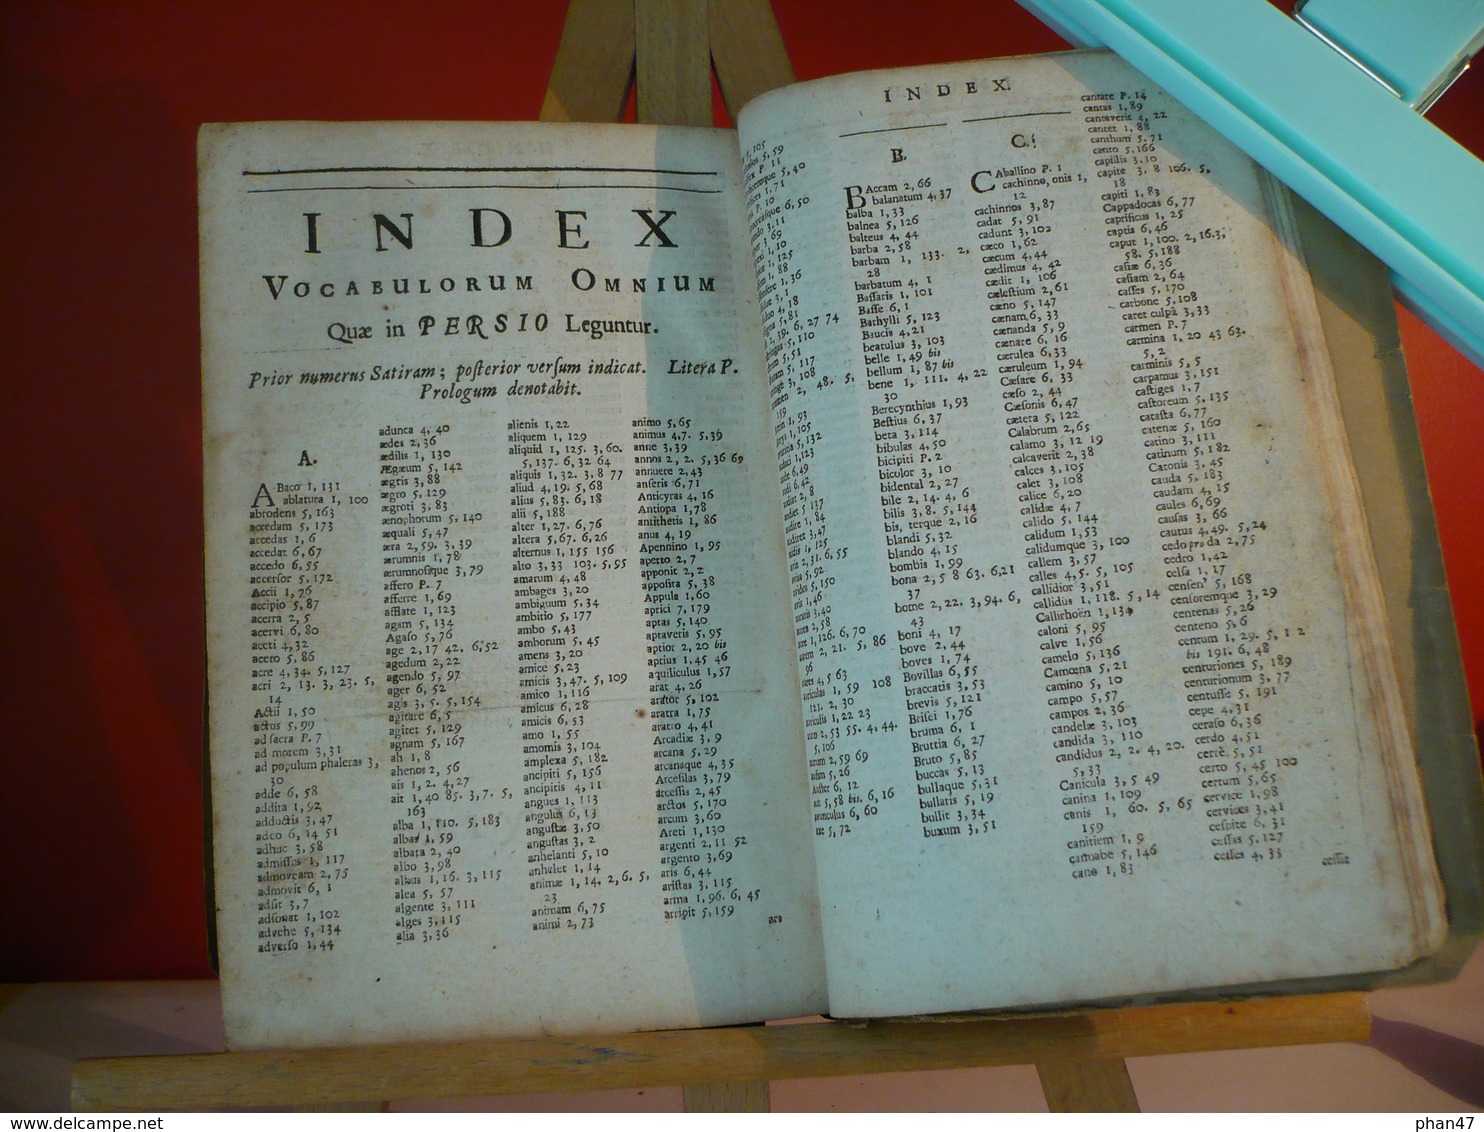 INDEX
VOCABULORUM OMNIUM
Quæ in PERSIO Leguntur.
Prior numerus Satiram; posterior versum indicat. Litera P.
Prologum denotabit.
A.
ABaco 1, 131
ablatura 1, 100
abrodens 5, 163
accedam 5, 173
accedas 1, 6
accedat 6, 67
accedo 6, 55
accersor 5, 172
Accii 1, 76
accipio 5, 87
acerra 2, 5
acervi 6, 80
aceti 4, 32
acero 5, 86
acre 4, 34. 5, 127
acri 2, 13. 3, 23. 5,
14
Actii 1, 50
actus 5, 99
ad sacra P. 7
ad morem 3, 31
ad populum phaleras 3,
30
adde 6, 58
addita 1, 92
adductis 3, 47
adeo 6, 14 51
adhuc 3, 58
admissus 1, 117
admoveam 2, 75
admovit 6, 1
adsit 3, 7
adsonat 1, 102
advehe 5, 134
adverso 1, 44
adunca 4, 40
ædes 2, 36
ædilis 1, 130
Ægæum 5, 142
ægris 3, 88
ægro 5, 129
ægroti 3, 83
ænophorum 5, 140
æquali 5, 47
æra 2, 59. 3, 39
ærumnis 1, 78
ærumnosique 3, 79
affero P. 7
afferre 1, 69
afflate 1, 123
agam 5, 134
Agaso 5, 76
age 2, 17 42. 6, 52
agedum 2, 22
agendo 5, 97
ager 6, 52
agis 3, 5. 5, 154
agitare 6, 5
agitet 5, 129
agnam 5, 167
ah 1, 8
ahenos 2, 56
ais 1, 2. 4, 27
ait 1, 40 85. 3, 7. 5,
163
alba 1, 110. 5, 183
albas 1, 59
albata 2, 40
albo 3, 98
albus 1, 16. 3, 115
alea 5, 57
algente 3, 111
alges 3, 115
alia 3, 36
alienis 1, 22
aliquem 1, 129
aliquid 1, 125. 3, 60.
5, 137. 6, 32 64
aliquis 1, 32. 3, 8 77
aliud 4, 19. 5, 68
alius 5, 83. 6, 18
alii 5, 188
alter 1, 27. 6, 76
altera 5, 67. 6, 26
alternus 1, 155 156
alto 3, 33 103. 5, 95
amarum 4, 48
ambages 3, 20
ambiguum 5, 34
ambitio 5, 177
ambo 5, 43
amborum 5, 45
amens 3, 20
amice 5, 23
amicis 3, 47. 5, 109
amico 1, 116
amicus 6, 28
amicis 6, 53
amo 1, 55
amomis 3, 104
amplexa 5, 182
ancipiti 5, 156
ancipitis 4, 11
angues 1, 113
angulus 6, 13
angustæ 3, 50
angustas 3, 2
anhelanti 5, 10
anhelet 1, 14
animæ 1, 14. 2, 6. 5,
23
animam 6, 75
animi 2, 73
animo 5, 65
animus 4, 7. 5, 39
anne 3, 39
annos 2, 2. 5, 36 69
annuere 2, 43
anseris 6, 71
Anticyras 4, 16
Antiopa 1, 78
antithetis 1, 86
anus 4, 19
Apennino 1, 95
aperto 2, 7
apponit 2, 2
apposita 5, 38
Appula 1, 60
aprici 7, 179
aptas 5, 140
aptaveris 5, 95
aptior 2, 20 bis
aptius 1, 45 46
aquiliculus 1, 57
arat 4, 26
arator 5, 102
aratra 1, 75
aratro 4, 41
Arcadiæ 3, 9
arcana 5, 29
arcanaque 4, 35
Arcesilas 3, 79
arcessis 2, 45
arctos 5, 170
arcum 3, 60
Areti 1, 130
argenti 2, 11 52
argento 3, 69
aris 6, 44
aristas 3, 115
arma 1, 96. 6, 45
arripit 5, 159
ara
INDEX.
B.
BAccam 2, 66
balanatum 4, 37
balba 1, 33
balnea 5, 126
balteus 4, 44
barba 2, 58
barbam 1, 133. 2,
28
barbatum 4, 1
Bassaris 1, 101
Basse 6, 1
Bathylli 5, 123
Baucis 4, 21
beatulus 3, 103
belle 1, 49 bis
bellum 1, 87 bis
bene 1, 111. 4, 22
30
Berecynthius 1, 93
Bestius 6, 37
beta 3, 114
bibulas 4, 50
bicipiti P. 2
bicolor 3, 10
bidental 2, 27
bile 2, 14. 4, 6
bilis 3, 8. 5, 144
bis, terque 2, 16
blandi 5, 32
blando 4, 15
bombis 1, 99
bona 2, 5 8 63. 6, 21
37
bome 2, 22. 3, 94. 6,
43
boni 4, 17
bove 2, 44
boves 1, 74
Bovillas 6, 55
braccatis 3, 53
brevis 5, 121
Brisei 1, 76
bruma 6, 1
Bruttia 6, 27
Bruto 5, 85
buccas 5, 13
bullaque 5, 31
bullatis 5, 19
bullit 3, 34
buxum 3, 51
C.
CAballino P. 1
cachinno, onis 1,
12
cachinnos 3, 87
cadat 5, 91
cadunt 3, 102
cæco 1, 62
cæcum 4, 44
cædimus 4, 42
cædit 1, 106
cælestium 2, 61
cæno 5, 147
cænam 6, 33
cænanda 5, 9
cænare 6, 16
cærulea 6, 33
cæruleum 1, 94
Cæsare 6, 33
cæso 2, 44
Cæsonis 6, 47
cætera 5, 122
Calabrum 2, 65
calamo 3, 12 19
calcaverit 2, 38
calces 3, 105
calet 3, 108
calice 6, 20
calidæ 4, 7
calido 5, 144
calidum 1, 53
calidumque 3, 100
callem 3, 57
calles 4, 5. 5, 105
callidior 3, 51
callidus 1, 118. 5, 14
Callirhoën 1, 134
caloni 5, 95
calve 1, 56
camelo 5, 136
Camœna 5, 21
camino 5, 10
campo 5, 57
campos 2, 36
candelæ 3, 103
candida 3, 110
candidus 2, 2. 4, 20.
5, 33
Canicula 3, 5 49
canina 1, 109
canis 1, 60. 5, 65
159
canitiem 1, 9
cannabe 5, 146
cano 1, 83
cantare P. 14
cantas 1, 89
cantaverit 4, 22
cantet 1, 88
canthum 5, 71
canto 5, 166
capillis 3, 10
capite 3, 8 106. 5,
18
capiti 1, 83
Cappadocas 6, 77
caprificus 1, 25
captis 6, 46
caput 1, 100. 2, 16. 3,
58. 5, 188
casiæ 6, 36
casiam 2, 64
casses 5, 170
carbone 5, 108
caret culpâ 3, 33
carmen P. 7
carmina 1, 20 43 63.
5, 2
carminis 5, 5
carpamus 5, 151
castiges 1, 7
castoreum 5, 135
catasta 6, 77
catenæ 5, 160
catino 3, 111
catinum 5, 182
Catonis 3, 45
cauda 5, 183
caudam 4, 15
caules 6, 69
causas 3, 66
cautus 4, 49. 5, 24
cedo pro da 2, 75
cedro 1, 42
celsa 1, 17
censen' 5, 168
censoremque 3, 29
centenas 5, 26
centeno 5, 6
centum 1, 29. 5, 1 2
bis 191. 6, 48
centuriones 5, 189
centurionum 3, 77
centusse 5, 191
cepe 4, 31
ceraso 6, 36
cerdo 4, 51
certè 5, 51
certo 5, 45 100
certum 5, 65
cervice 1, 98
cervices 3, 41
cespite 6, 31
cessas 5, 127
cesses 4, 33
cessit
phan47